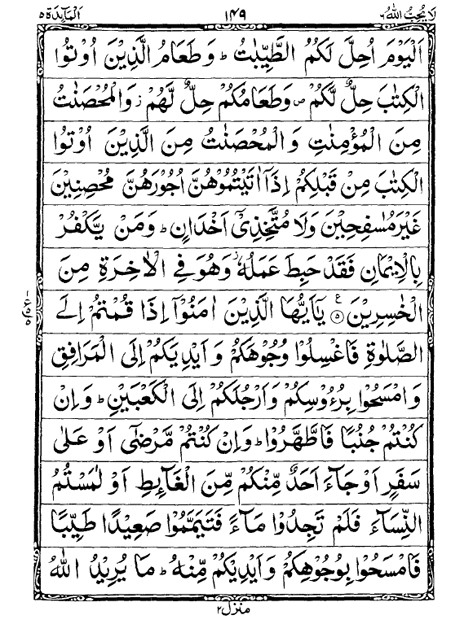 لَا يُحِبُّ اللّٰهُ ٦ ١٤٩ اَلْمَآئِدَة ٥
اَلْيَوْمَ اُحِلَّ لَكُمُ الطَّيِّبٰتُ ؕ وَطَعَامُ الَّذِيْنَ اُوْتُوا
الْكِتٰبَ حِلٌّ لَّكُمْ ۪ وَطَعَامُكُمْ حِلٌّ لَّهُمْ ز وَالْمُحْصَنٰتُ
مِنَ الْمُؤْمِنٰتِ وَالْمُحْصَنٰتُ مِنَ الَّذِيْنَ اُوْتُوا
الْكِتٰبَ مِنْ قَبْلِكُمْ اِذَاۤ اٰتَيْتُمُوْهُنَّ اُجُوْرَهُنَّ مُحْصِنِيْنَ
غَيْرَ مُسٰفِحِيْنَ وَلَا مُتَّخِذِيْۤ اَخْدَانٍ ؕ وَمَنْ يَّكْفُرْ
بِالْاِيْمَانِ فَقَدْ حَبِطَ عَمَلُهٗ ز وَهُوَ فِي الْاٰخِرَةِ مِنَ
الْخٰسِرِيْنَ ۝٥ ع يٰۤاَيُّهَا الَّذِيْنَ اٰمَنُوْۤا اِذَا قُمْتُمْ اِلَى
الصَّلٰوةِ فَاغْسِلُوْا وُجُوْهَكُمْ وَاَيْدِيَكُمْ اِلَى الْمَرَافِقِ
وَامْسَحُوْا بِرُءُوْسِكُمْ وَاَرْجُلَكُمْ اِلَى الْكَعْبَيْنِ ؕ وَاِنْ
كُنْتُمْ جُنُبًا فَاطَّهَّرُوْا ؕ وَاِنْ كُنْتُمْ مَّرْضٰۤى اَوْ عَلٰى
سَفَرٍ اَوْ جَآءَ اَحَدٌ مِّنْكُمْ مِّنَ الْغَآئِطِ اَوْ لٰمَسْتُمُ
النِّسَآءَ فَلَمْ تَجِدُوْا مَآءً فَتَيَمَّمُوْا صَعِيْدًا طَيِّبًا
فَامْسَحُوْا بِوُجُوْهِكُمْ وَاَيْدِيْكُمْ مِّنْهُ ؕ مَا يُرِيْدُ اللّٰهُ
منزل ٢